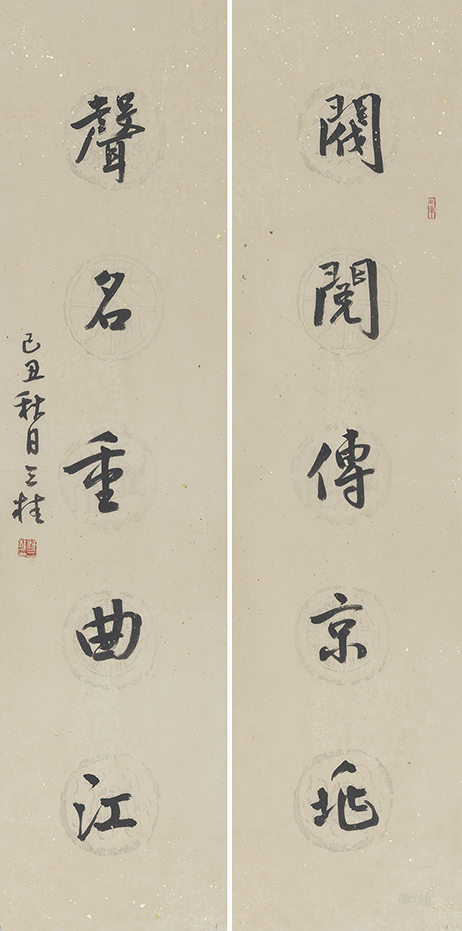 閥閱傳京兆
聲名重曲江
己丑秋日三桂